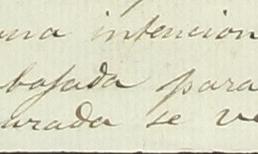 una intencion
bajada para
urada se ve